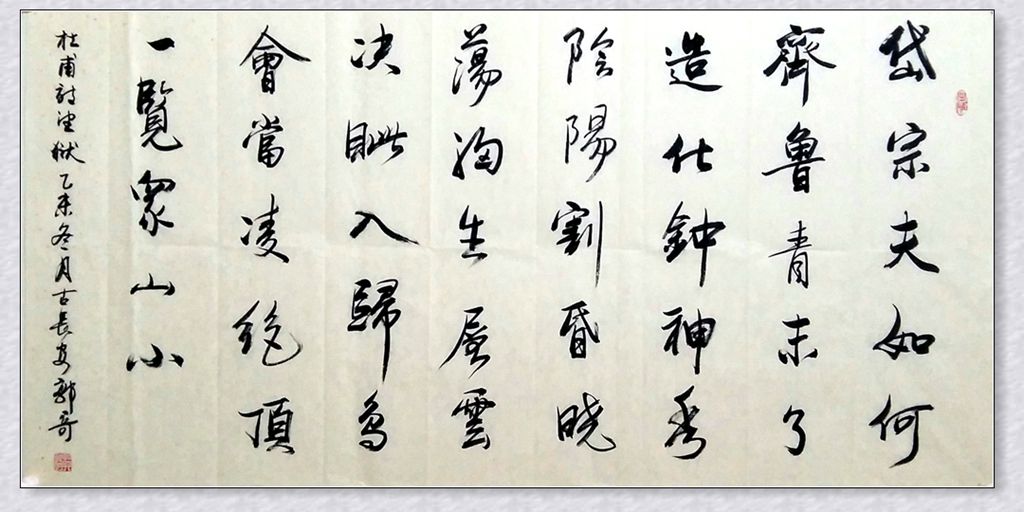 岱宗夫如何
齊魯青未了
造化鐘神秀
陰陽割昏晓
蕩胸生層雲
决眦入歸鳥
會當凌絕頂
一覽眾山小
杜甫詩望狱乙未冬月古長安郭哥